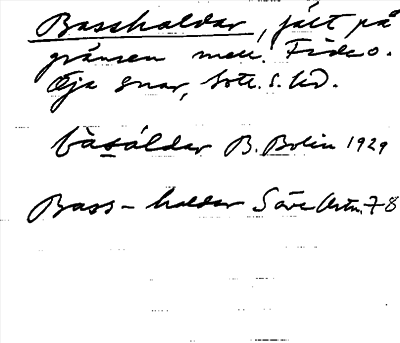 Basshaldar, jält på
gränsen mell. Fide o.
Öja snar, Gotl. s. hd.
bàsáldar B. Bolin 1929
Bass-haldar Säve Ortn. 78